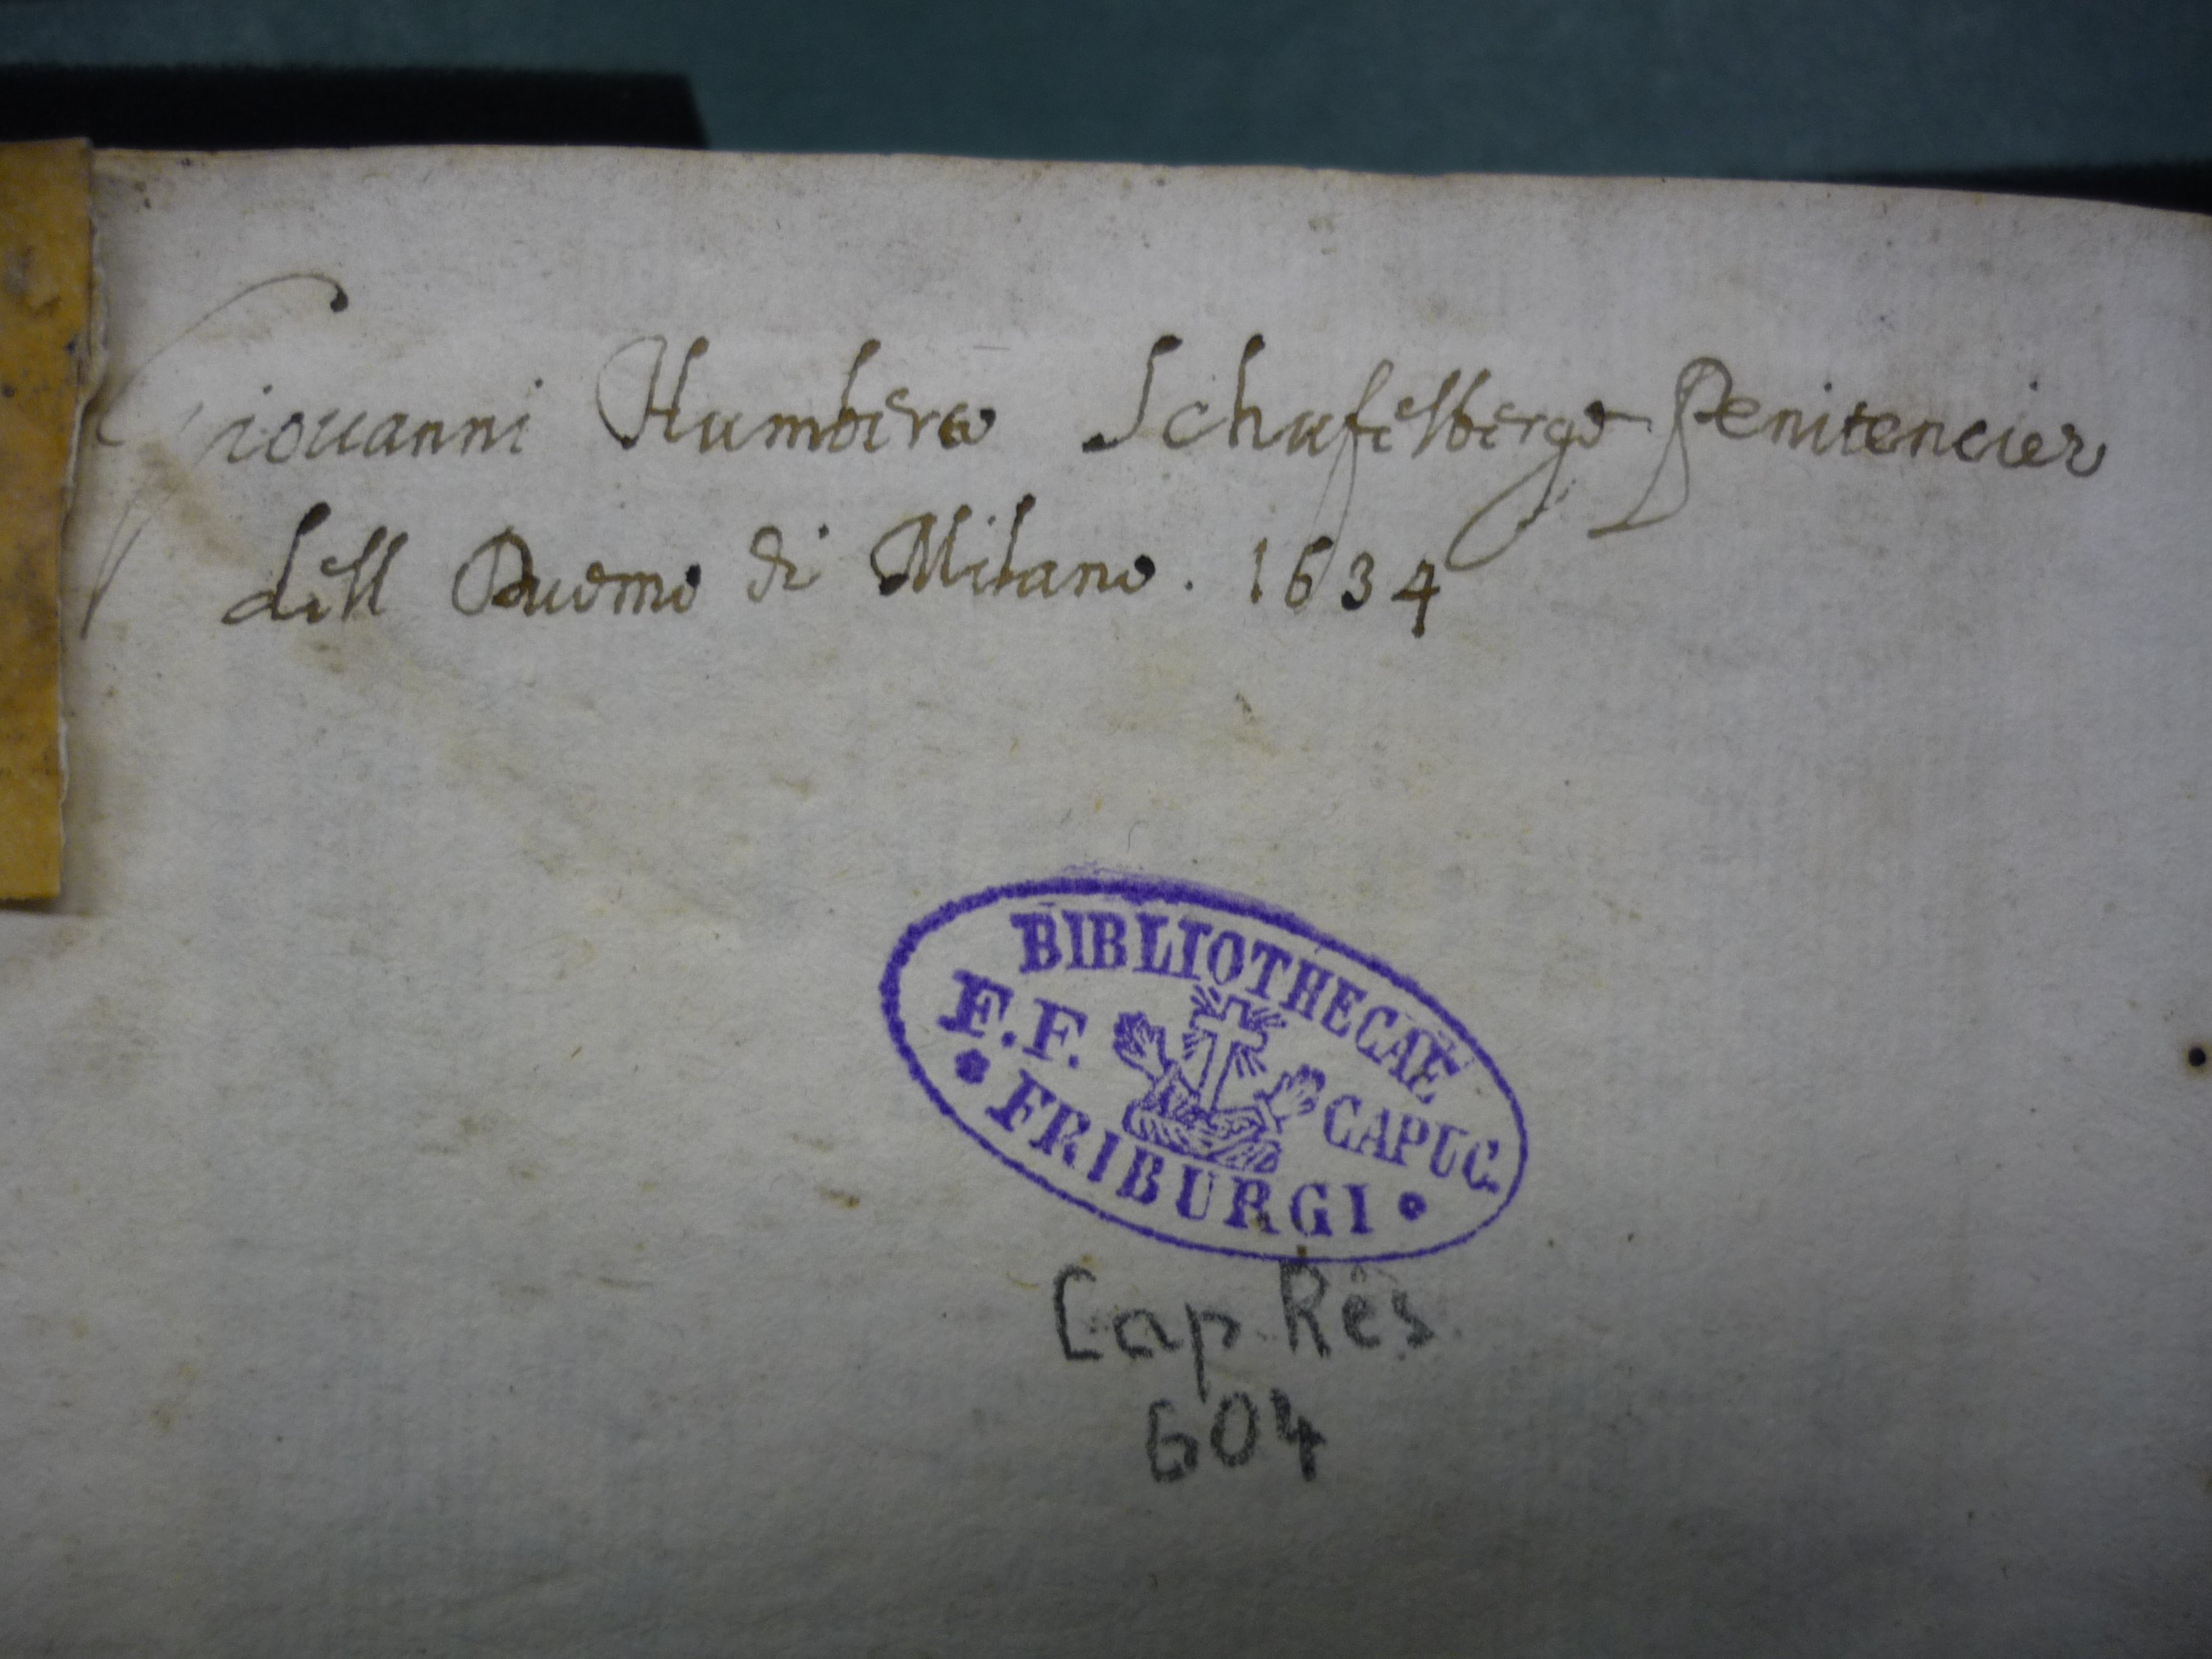 Giouanni Humberto Schufelbergo Penitencier
dell Duomo di Milano. 1634
BIBLIOTHECAE
F.F. CAPUC.
FRIBURGI
Cap Rés
604